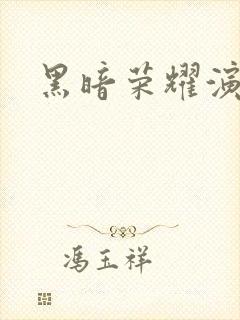 黑暗荣耀演
冯玉祥